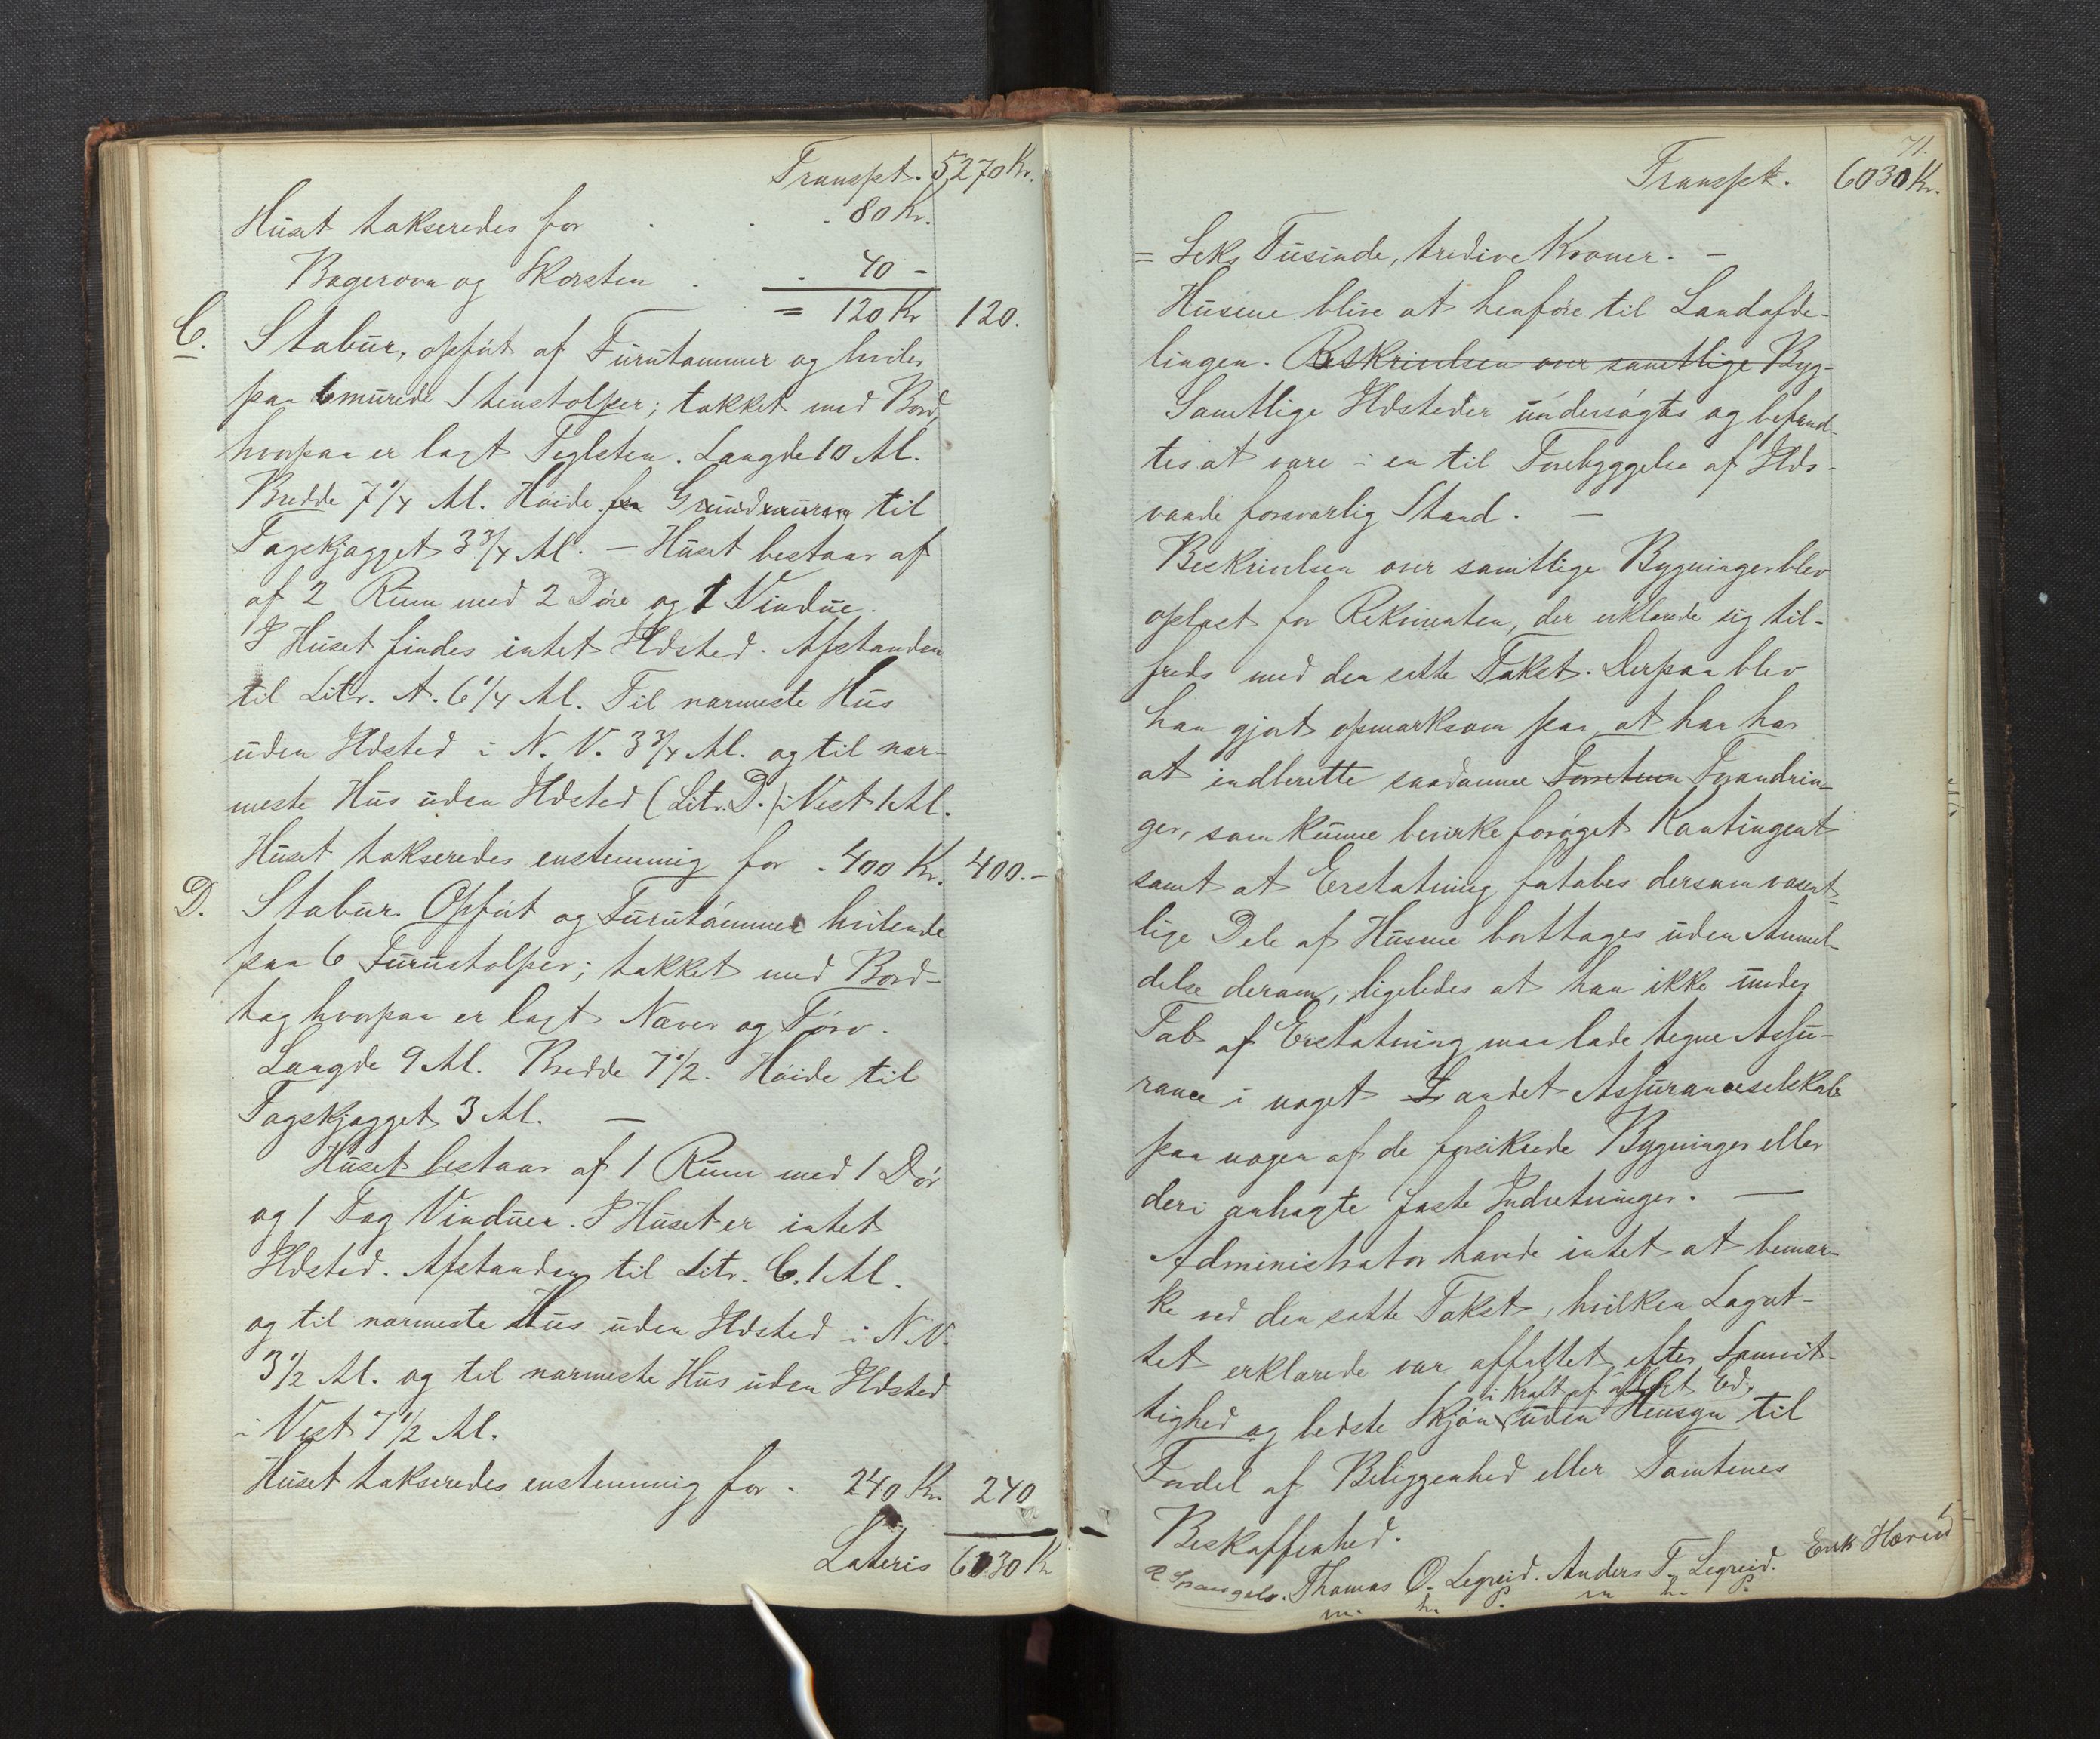 Transpt. 5270 Kr.
Huset takseredes for . . . 80 Kr.
Bagerovn og Skorsten . . 40 –
= 120 Kr 120.
C. Stabur, opført af Furutømmer og hviler
paa 6 murede Stenstolper; tækket med Bord,
hvorpaa er lagt Teglsten. Længde 10 Al.
Bredde 7 1/4 Al. Høide fra Grundmuren til
Tagskjægget 3 3/4 Al. — Huset bestaar af
af 2 Rum med 2 Døre og 1 Vindue.
I Huset findes intet Ildsted. Afstanden
til Litr. A. 6 1/4 Al. Til nærmeste Hus
uden Ildsted i N. V. 3 3/4 Al. og til nær-
meste Hus uden Ildsted (Litr. D.) i Vest 1 Al.
Huset takseredes enstemmig for . 400 Kr. 400.–
D. Stabur. Opført og Furutømmer hvilende
paa 6 Furustolper; tækket med Bord-
tag hvorpaa er lagt Næver og Tørv.
Længde 9 Al. Bredde 7 1/2. Høide til
Tagskjægget 3 Al. —
Huset bestaar af 1 Rum med 1 Dør
og 1 Fag Vinduer. I Huset er intet
Ildsted. Afstanden til Litr. C. 1 Al.
og til nærmeste Hus uden Ildsted i N.V.
3 1/2 Al. og til nærmeste Hus uden Ildsted
i Vest 7 1/2 Al.
Huset takseredes enstemmig for . 240 Kr. 240
Lateris 6030 Kr
71.
Transpt. 6030 Kr.
= Seks Tusinde, tredive Kroner. –
Husene blive at henføre til Landafde-
lingen. Beskrivelsen over samtlige Byg-
Samtlige Ildsteder undersøgtes og befand-
tes at være i en til Forebyggelse af Ilds-
vaade forsvarlig Stand. —
Beskrivelsen over samtlige Bygninger blev
oplæst for Rekvirenten, der erklærede sig til-
freds med den satte Takst. Derpaa blev
han gjort opmærksom paa at han har
at indberette saadanne Forandrin-
ger, som kunne bevirke forøget Kontingent
samt at Erstatning fortabes dersom væsent-
lige Dele af Husene borttages uden Anmel-
delse derom, ligeledes at han ikke under
Tab af Erstatning maa lade tegne Assu-
rance i noget andet Assuranceselskab
paa nogen af de forsikrede Bygninger eller
deri anbragte faste Indretninger. —
Administrator havde intet at bemær-
ke ved den satte Takst, hvilken Lagret-
tet erklærede var affattet efter Samvit-
i Kraft af aflagt Ed,
tighed og bedste Skjøn uden Hensyn til
Fordel af Beliggenhed eller Tomtenes
Beskaffenhed.
Thomas O. Legreid. Anders T. Legreid. Erik Hæreid
m. h. p. m. h. p.